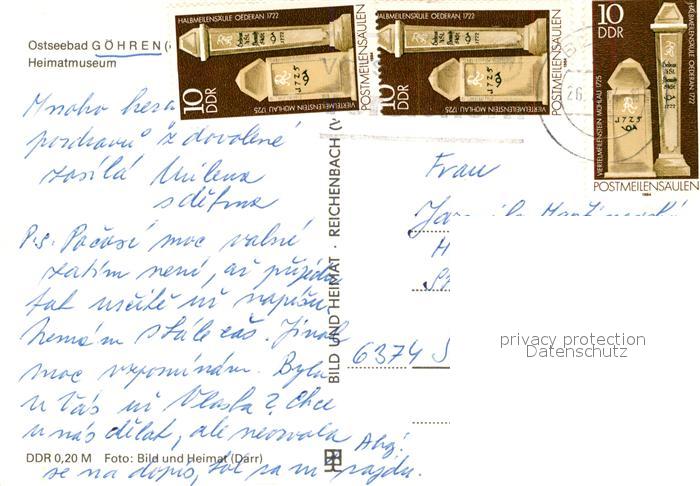 Ostseebad GÖHREN (
Heimatmuseum
HALBMEILENSÄULE OEDERAN 1722
VIERTELMEILENSTEIN MOHLAU 1725
10 DDR
POSTMEILENSÄULEN
1984
HALBMEILENSÄULE OEDERAN 1722
VIERTELMEILENSTEIN MOHLAU 1725
10 DDR
POSTMEILENSÄULEN
1984
10
DDR
HALBMEILENSÄULE OEDERAN 1722
VIERTELMEILENSTEIN MOHLAU 1725
POSTMEILENSÄULEN
1984
Mnoho
pozdravů z dovolené
zasílá Milena
s dětma
P.S. Počasí moc valné
zatím není, až přijedu
tak určitě už napíšu
Nemám stále čas. Jinak
moc vzpomínám. Byla
u Vás už Vlasta? Chce
u nás dělat, ale
se na dopis,
Ahoj!
BILD UND HEIMAT · REICHENBACH (V
Frau
6374
privacy protection
Datenschutz
DDR 0,20 M Foto: Bild und Heimat (Darr)